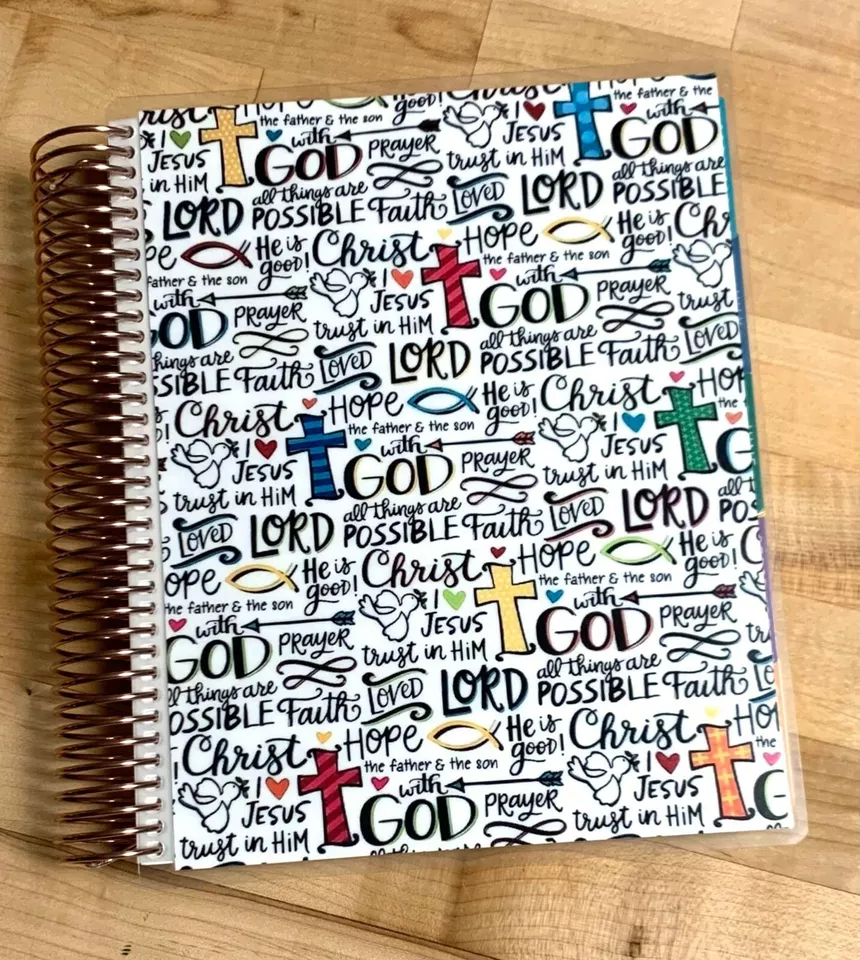 Christ HOPE
the father & the son good! the father & the
I JESUS with GOD PRAYER I JESUS with GOD
in HiM trust in HiM
LORD all things are POSSIBLE Faith LOVED LORD all things are POSSIBLE
He is good! Christ HOPE He is good!
father & the son I JESUS the father & the son
with PRAYER trust in HiM with GOD PRAYER trust
Faith LOVED LORD all things are POSSIBLE Faith LOVED
Christ HOPE He is good! Christ
I JESUS the father & the son I JESUS the
trust in HiM with GOD PRAYER trust in HiM
LOVED LORD all things are POSSIBLE Faith LOVED LORD
He is good! Christ HOPE He is good!
the father & the son I JESUS the father & the son
with GOD PRAYER trust in HiM with GOD PRAYER
things are Faith LOVED LORD all things are POSSIBLE Faith
Christ HOPE He is good! Christ
I JESUS the father & the son I JESUS the
trust in HiM with GOD PRAYER trust in HiM